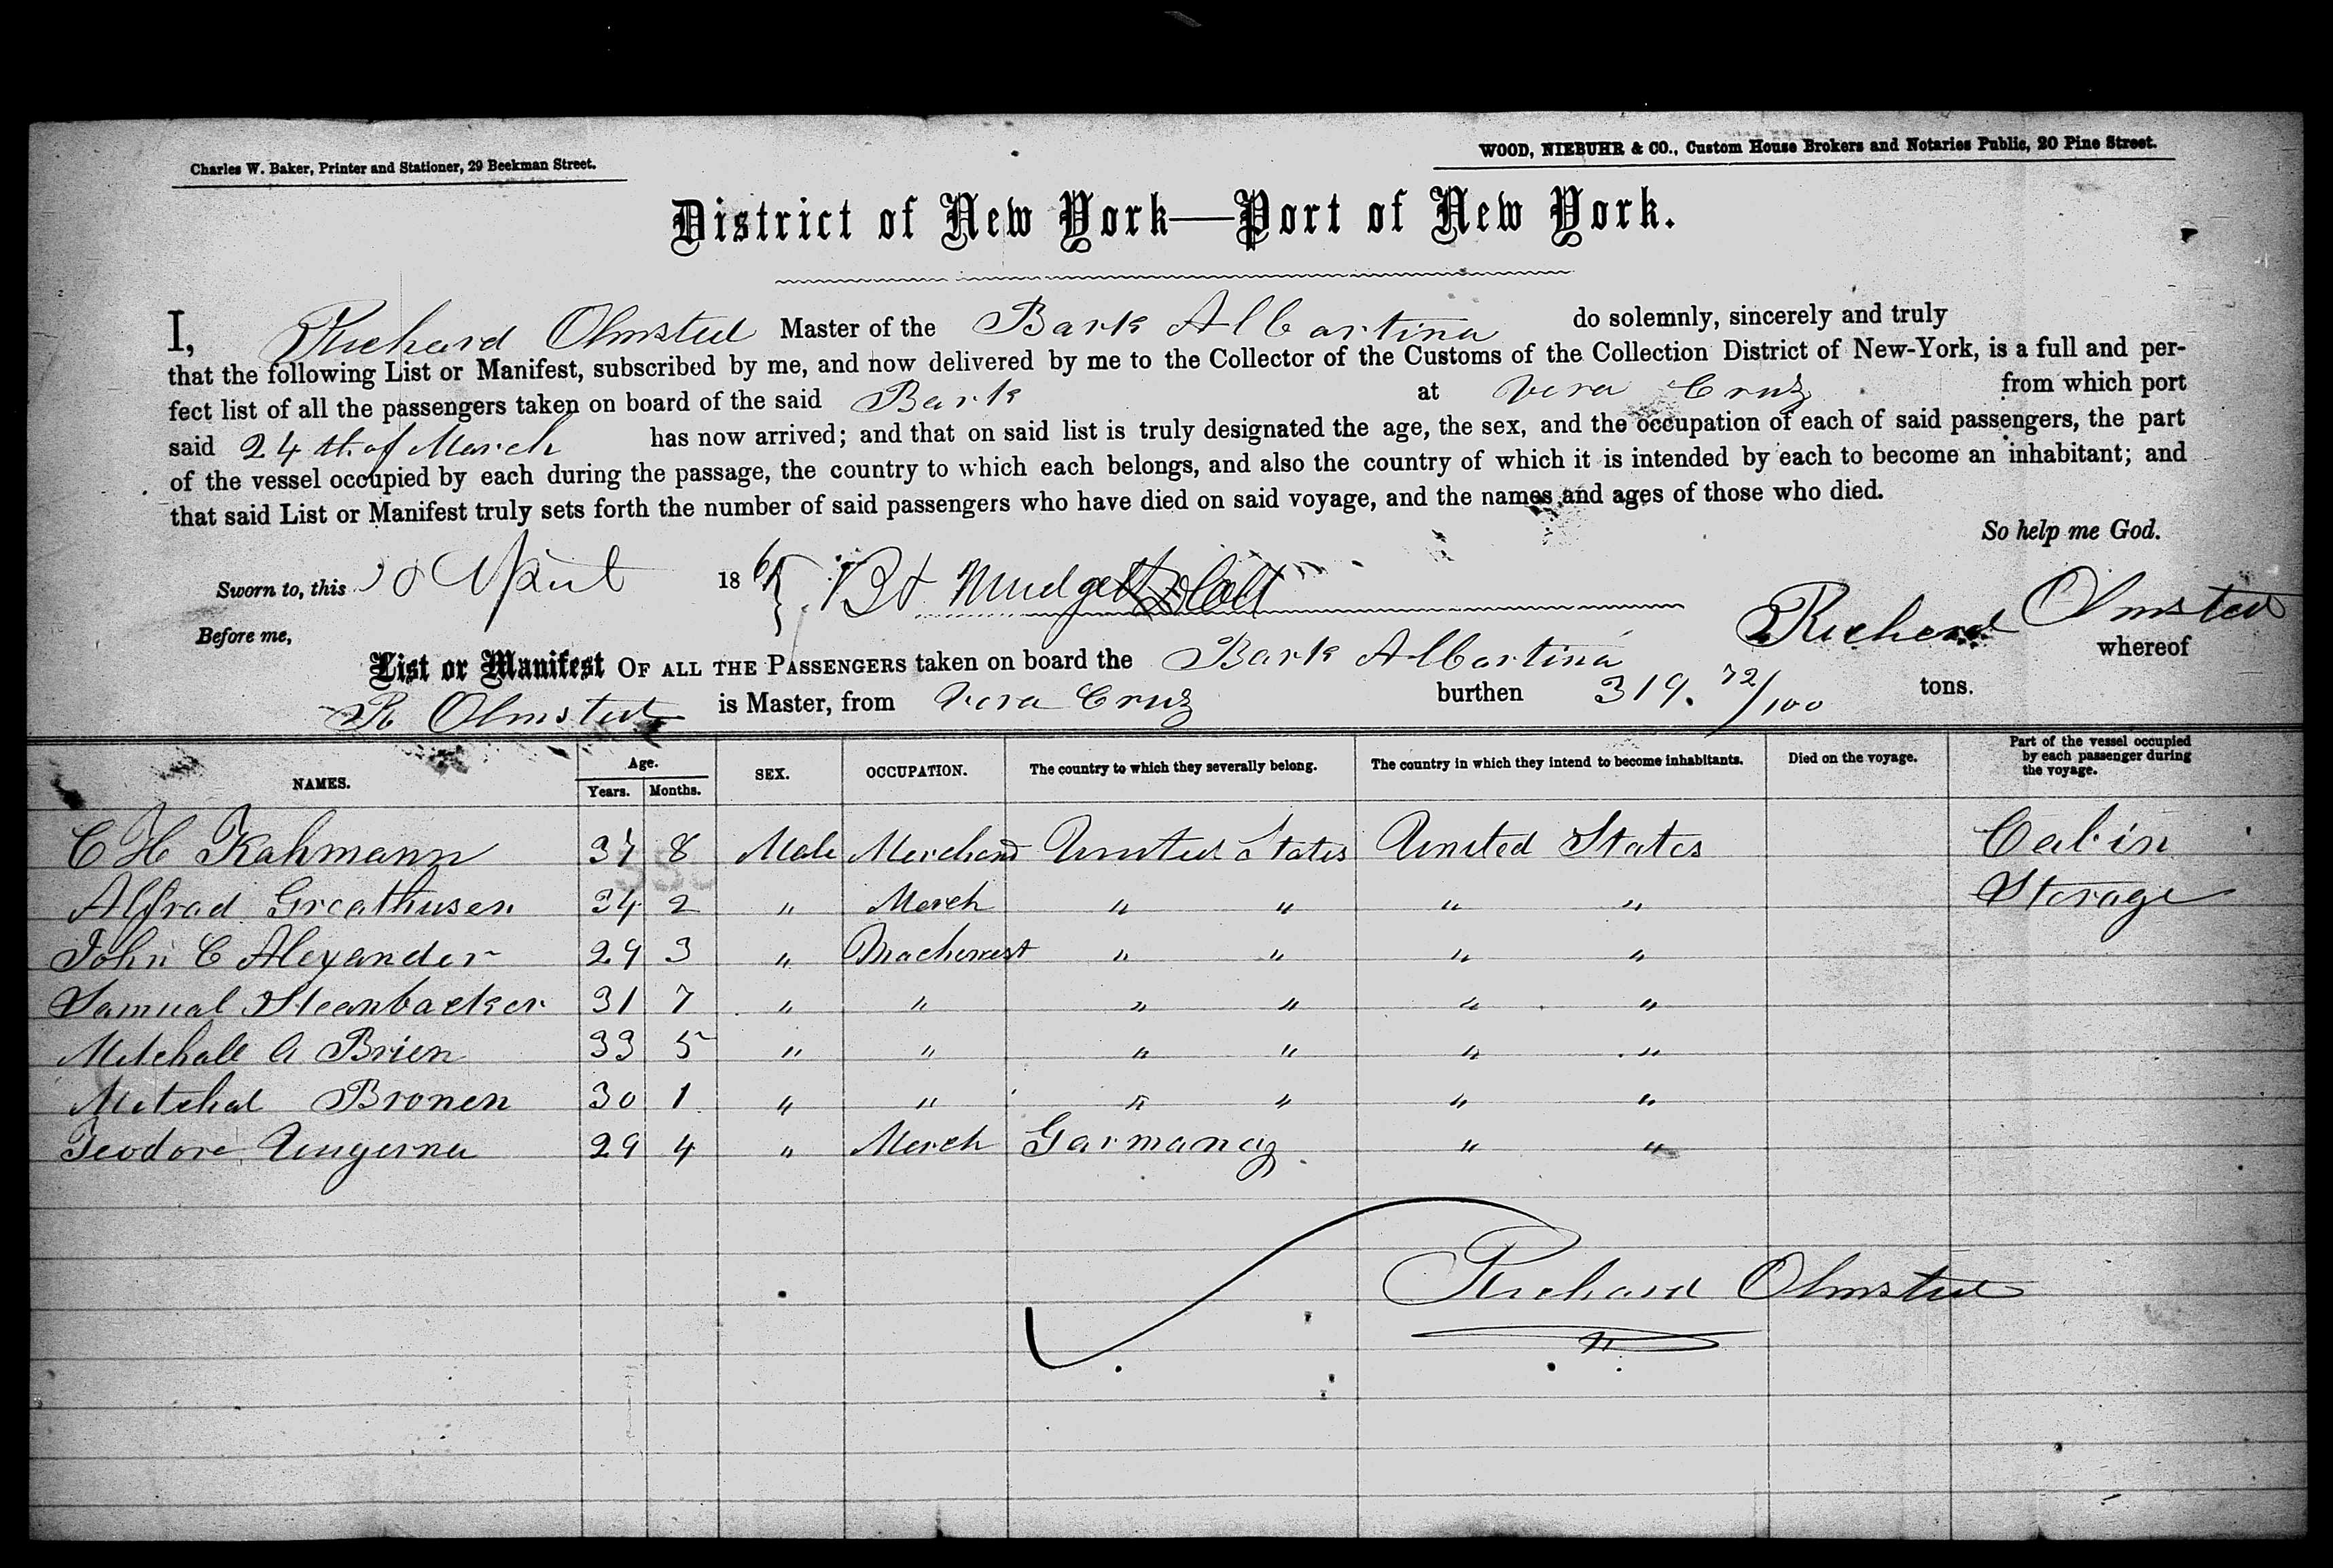 Charles W. Baker, Printer and Stationer, 29 Beekman Street.
WOOD, NIEBUHR & CO., Custom House Brokers and Notaries Public, 20 Pine Street.
District of New York—Port of New York.
I, Richard Olmsted Master of the Bark Albartina do solemnly, sincerely and truly
that the following List or Manifest, subscribed by me, and now delivered by me to the Collector of the Customs of the Collection District of New-York, is a full and per-
fect list of all the passengers taken on board of the said Bark at Vera Cruz from which port
said 24th of March has now arrived; and that on said list is truly designated the age, the sex, and the occupation of each of said passengers, the part
of the vessel occupied by each during the passage, the country to which each belongs, and also the country of which it is intended by each to become an inhabitant; and
that said List or Manifest truly sets forth the number of said passengers who have died on said voyage, and the names and ages of those who died.
So help me God.
Sworn to, this April 186
Richard Olmsted
Before me,
List or Manifest OF ALL THE PASSENGERS taken on board the Bark Albartina whereof
R Olmsted is Master, from Vera Cruz burthen 319. 72/100 tons.
NAMES. Age. Years. Months. SEX. OCCUPATION. The country to which they severally belong. The country in which they intend to become inhabitants. Died on the voyage. Part of the vessel occupied by each passenger during the voyage.
C H Kahmann 37 8 Male Merchand United States United States Cabin
Alfrad Greathusen 34 2 " March " " " " Storage
John C Alexander 29 3 " " " " "
Samual Steanbacker 31 7 " " " " " "
Mitchall A Brien 33 5 " " " " " "
Mitchal Bronen 30 1 " " " " " "
Teodore 29 4 " March Garmany " "
Richard Olmsted